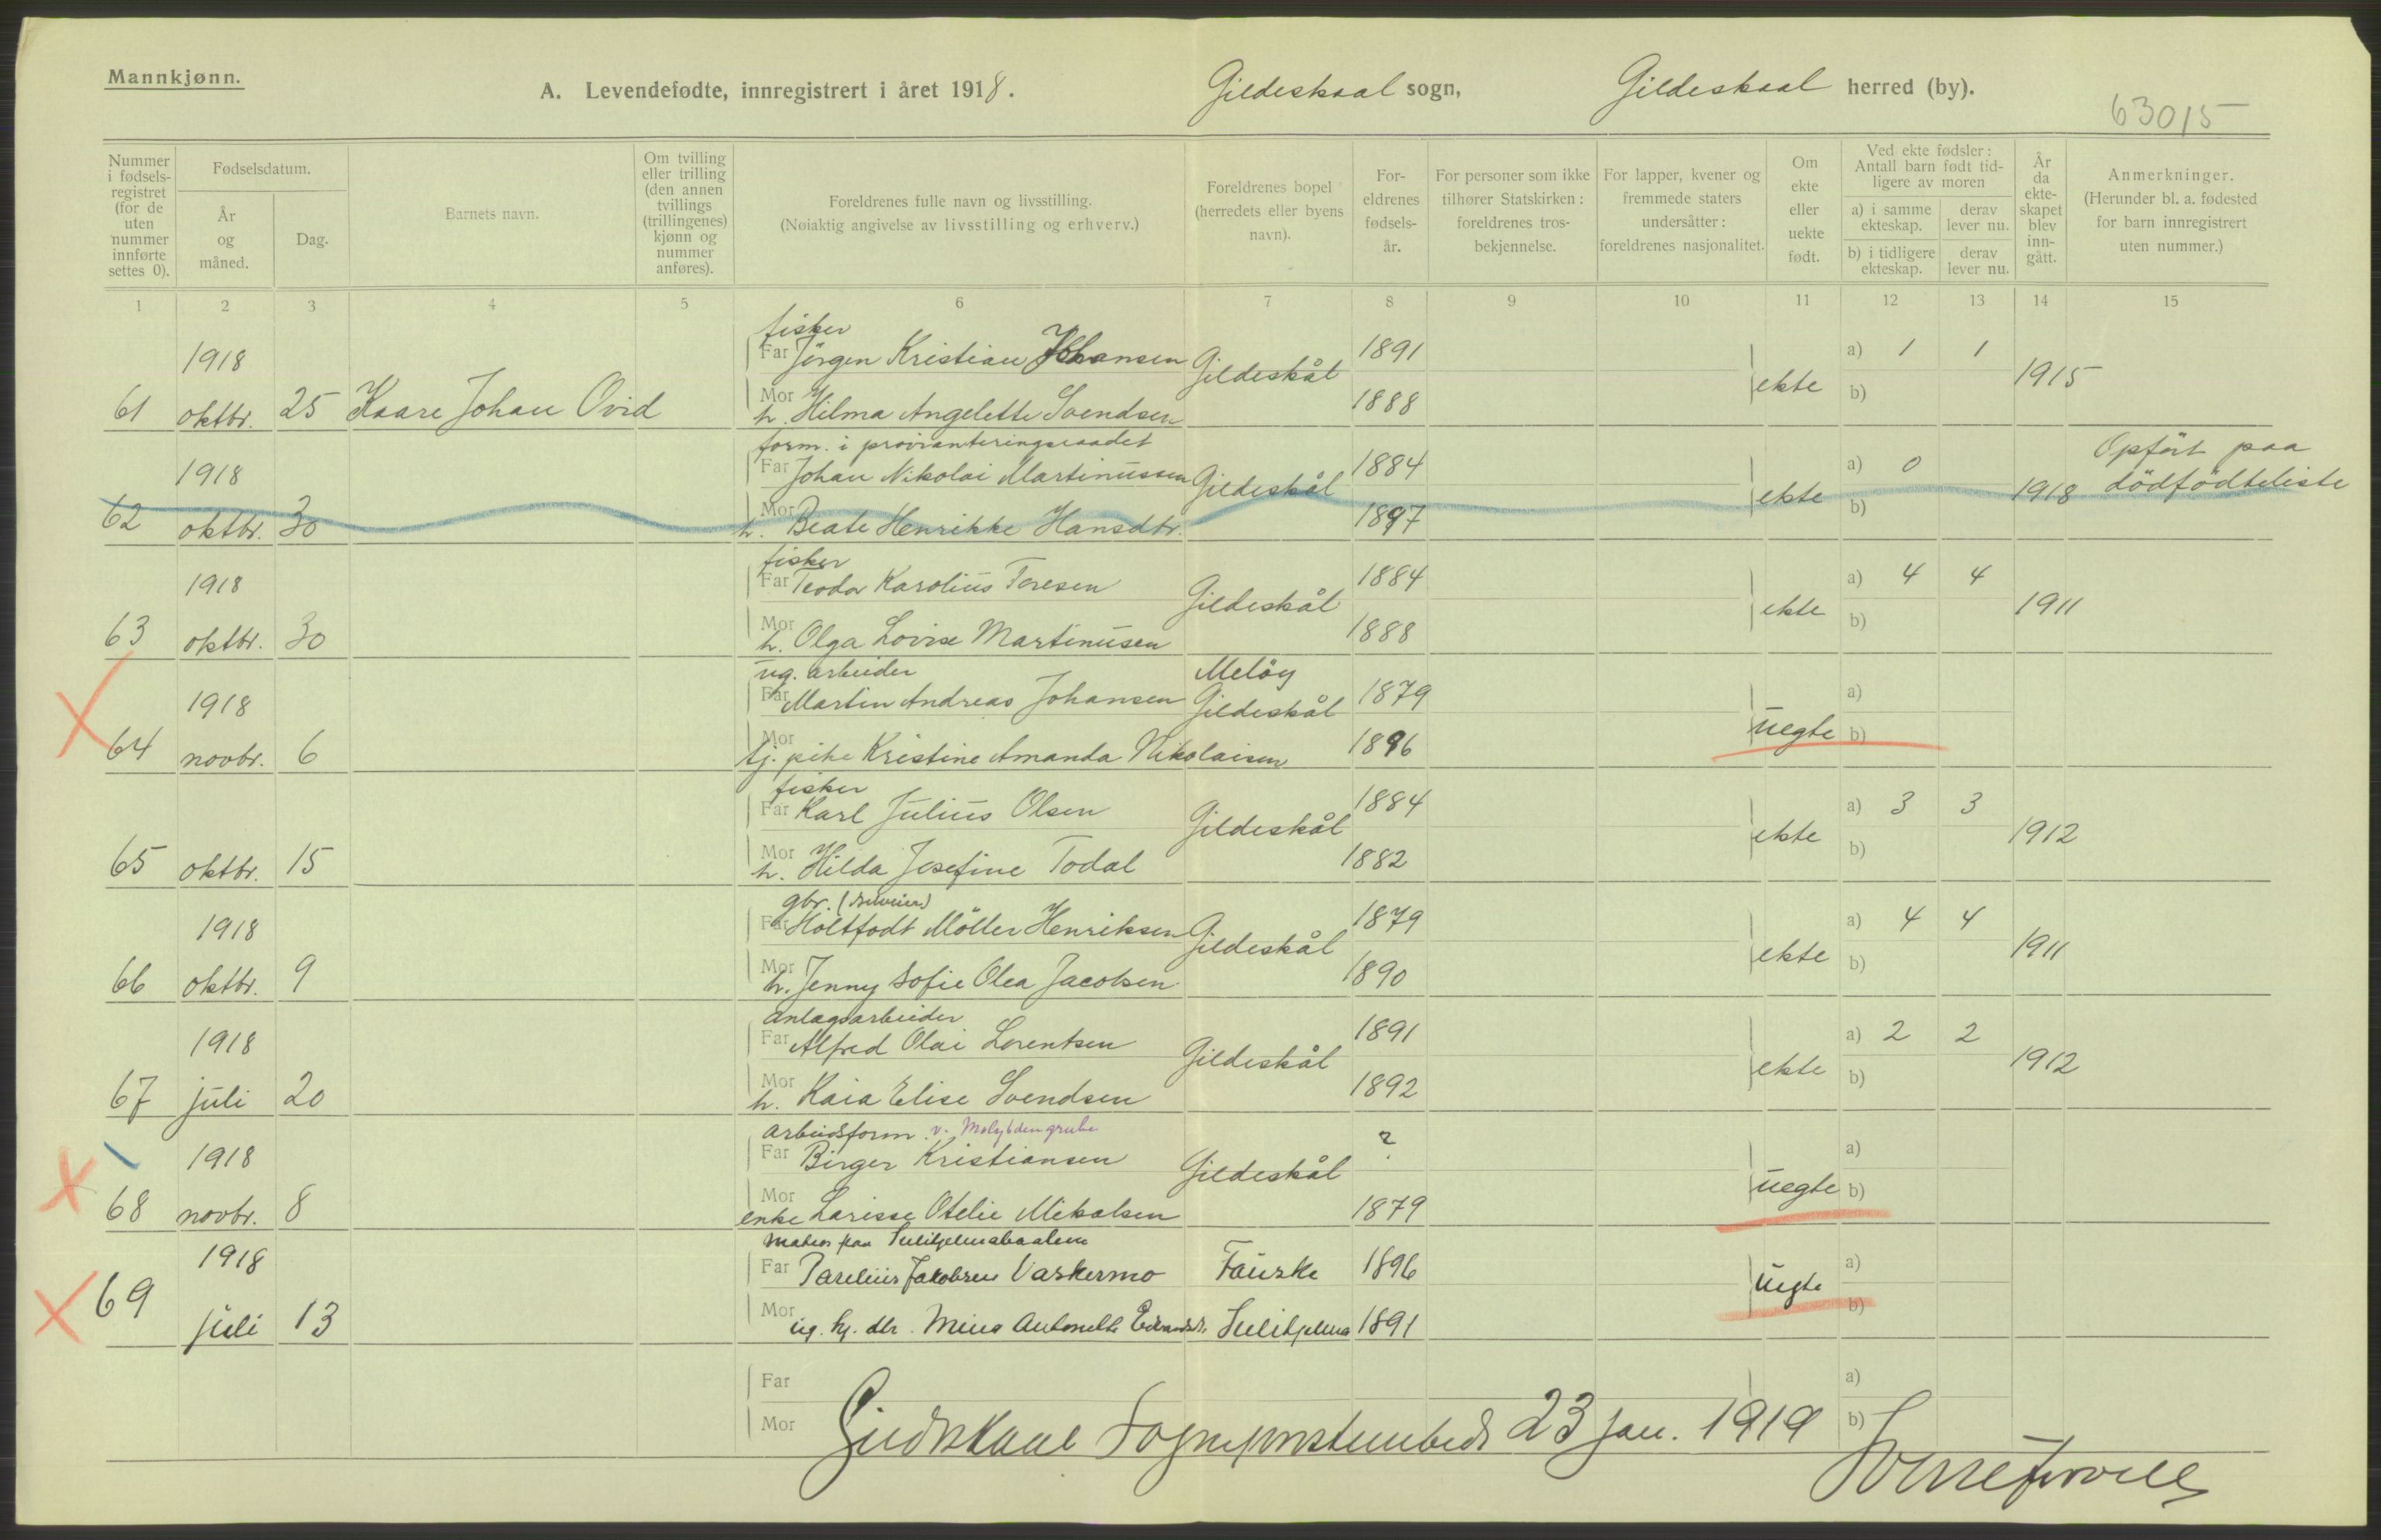 Mannkjønn.
A. Levendefødte, innregistrert i året 1918.
Gildeskaal sogn,
Gildeskaal herred (by).
63015
Nummer i fødsels-registret (for de uten nummer innførte settes 0).
Fødselsdatum.
År og måned.
Dag.
Barnets navn.
Om tvilling eller trilling (den annen tvillings (trillingenes) kjønn og nummer anføres).
Foreldrenes fulle navn og livsstilling.
(Nøiaktig angivelse av livsstilling og erhverv.)
Foreldrenes bopel (herredets eller byens navn).
For-eldrenes fødsels-år.
For personer som ikke tilhører Statskirken: foreldrenes tros-bekjennelse.
For lapper, kvener og fremmede staters undersåtter: foreldrenes nasjonalitet.
Om ekte eller uekte født.
Ved ekte fødsler: Antall barn født tid-ligere av moren
a) i samme ekteskap.
derav lever nu.
b) i tidligere ekteskap.
derav lever nu.
År da ekte-skapet blev inn-gått.
Anmerkninger.
(Herunder bl. a. fødested for barn innregistrert uten nummer.)
1 2 3 4 5 6 7 8 9 10 11 12 13 14 15
fisker
1918 Far Jörgen Kristian Johansen Gildeskål 1891 a) 1 1
61 oktbr. 25 Kaare Johan Ovid Mor h. Hilma Angelette Svendsen 1888 ekte b) 1915
form. i provianteringsraadet
1918 Far Johan Nikolai Martinussen Gildeskål 1884 a) 0 Opfört paa
62 oktbr. 30 Mor h. Beate Henrikke Hansdtr. 1897 ekte b) 1918 dödfödteliste
fisker
1918 Far Teodor Karolius Toresen Gildeskål 1884 a) 4 4
63 oktbr. 30 Mor h. Olga Lovise Martinusen 1888 ekte b) 1911
ug. arbeider Melöy
1918 Far Martin Andreas Johansen Gildeskål 1879 a)
64 novbr. 6 Mor tj. pike Kristine Amanda Nikolaisen 1896 uegte b)
fisker
Far Karl Julius Olsen Gildeskål 1884 a) 3 3
65 oktbr. 15 Mor h. Hilda Josefine Todal 1882 ekte b) 1912
gbr. (selveier)
1918 Far Holtfodt Möller Henriksen Gildeskål 1879 a) 4 4
66 oktbr. 9 Mor h. Jenny Sofie Olea Jacobsen 1890 ekte b) 1911
anlægsarbeider
1918 Far Alfred Olai Lorentsen Gildeskål 1891 a) 2 2
67 juli 20 Mor h. Kaia Elise Svendsen 1892 ekte b) 1912
arbeidsform. v. Molybdengrube
1918 Far Birger Kristiansen Gildeskål ? a)
68 novbr. 8 Mor enke Larisse Otelie Mikalsen 1879 uegte b)
paa Sulitjelmabaaten
1918 Far Parelius Jakobsen Vaskermo Fauske 1896 a)
69 juli 13 Mor ug. Antonette Sulitjelma 1891 uegte b)
Far a)
Mor b)
Gildeskaal Sogneprestembede 23 jan. 1919